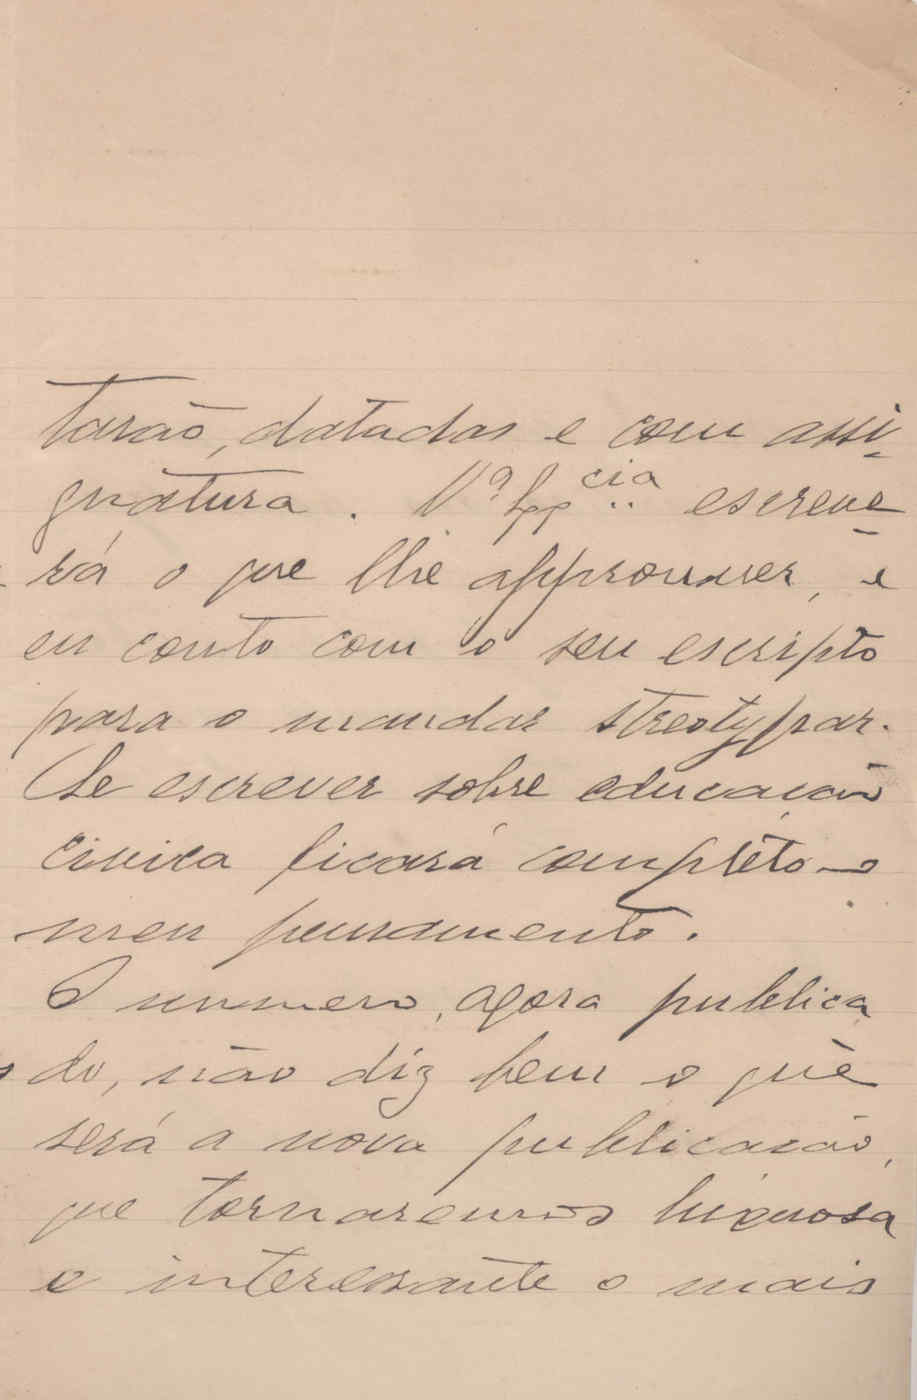 tarão, datadas e com assi-
gnatura. V.ª Ex.cia escreve-
rá o que lhe approuver, e
eu conto com o seu escripto
para o mandar streotypar.
Se escrever sobre educação
civica ficará completo o
meu pensamento.
O numero, agora publica
do, não diz bem o que
será a nova publicação,
que tornaremos luxuosa
e interessante o mais